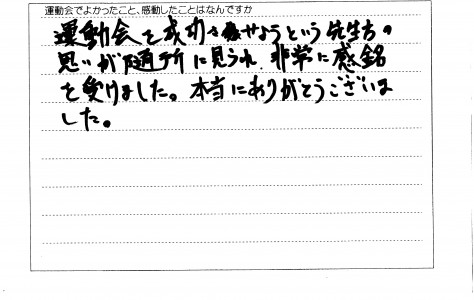 運動会でよかったこと、感動したことはなんですか
運動会を成功させようという先生方の
思いが随所に見られ、非常に感銘
を受けました。本当にありがとうございま
した。